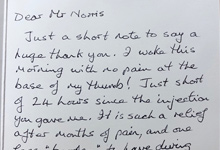 Dear Mr Norris
Just a short note to say a
huge thank you. I woke this
morning with no pain at the
base of my thumb! Just short
of 24 hours since the injection
you gave me. It is such a relief
after months of pain, and one